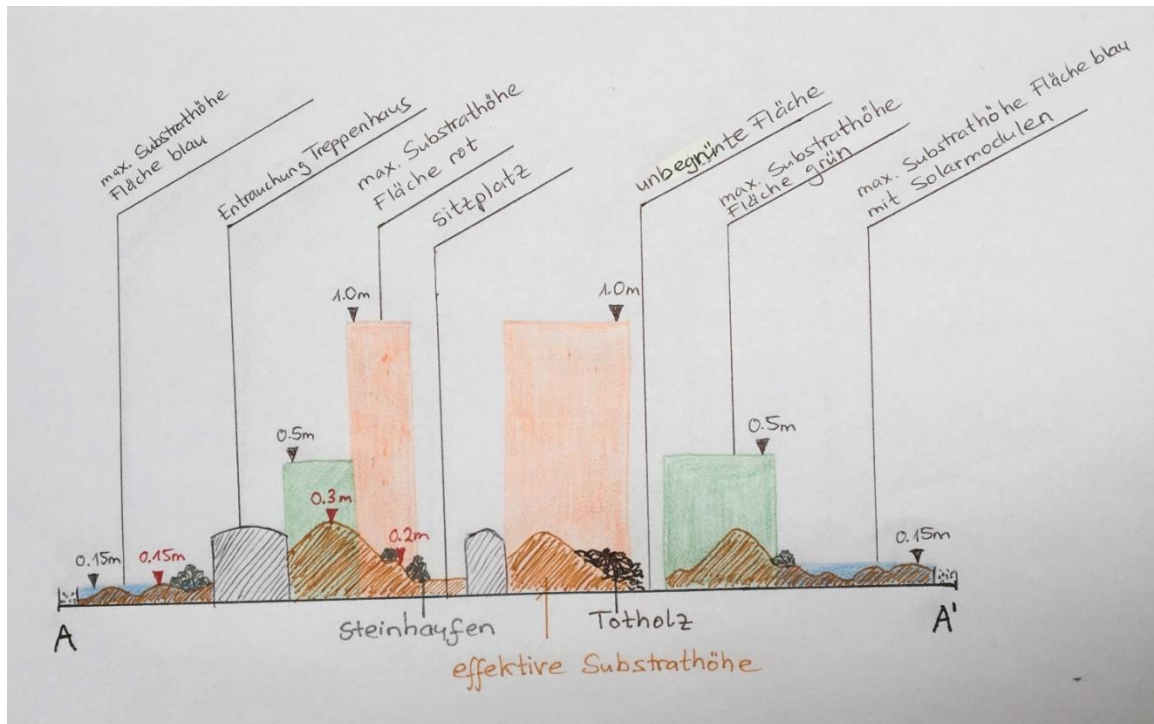 max. Substrathöhe
Fläche blau
Entrauchung Treppenhaus
max. Substrathöhe
Fläche rot
Sitzplatz
unbegrünte Fläche
max. Substrathöhe
Fläche grün
max. Substrathöhe Fläche blau
mit Solarmodulen
1.0m
1.0m
0.5m
0.5m
0.3m
0.2m
0.15m
0.15m
0.15m
A
A'
Steinhaufen
Totholz
effektive Substrathöhe